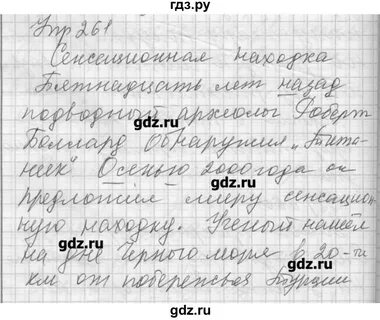 гдз.ру
Упр 261
Сенсеционная находка
Пятнадцать лет назад
gdz.ru
подводный археолог Роберт
Боллард обнаружил „Тита-
gdz.ru
ник" Осенью 2000 года он
предложил миру сенсацион-
gdz.ru
ную находку. Ученый нашёл
на дне Чёрного моря в 20-ти
gdz.ru
км от побережья Турции